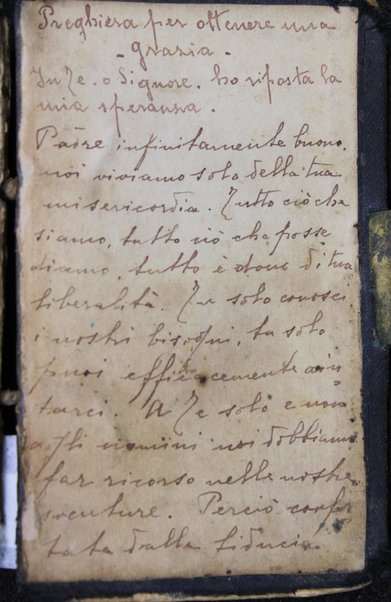 Preghiera per ottenere una
grazia.
In Te. o Signore. ho riposta la
mia speranza.
Padre infinitamente buono.
noi viviamo solo della tua
misericordia. Tutto ciò che
siamo, tutto ciò che posse
diamo, tutto è dono di tua
liberalità. Tu solo conosci
i nostri bisogni, tu solo
puoi efficacemente aiu
tarci. A Te solo e non
agli uomini noi dobbiamo
far ricorso nelle nostre
sventure. Perciò confor
tata dalla fiducia